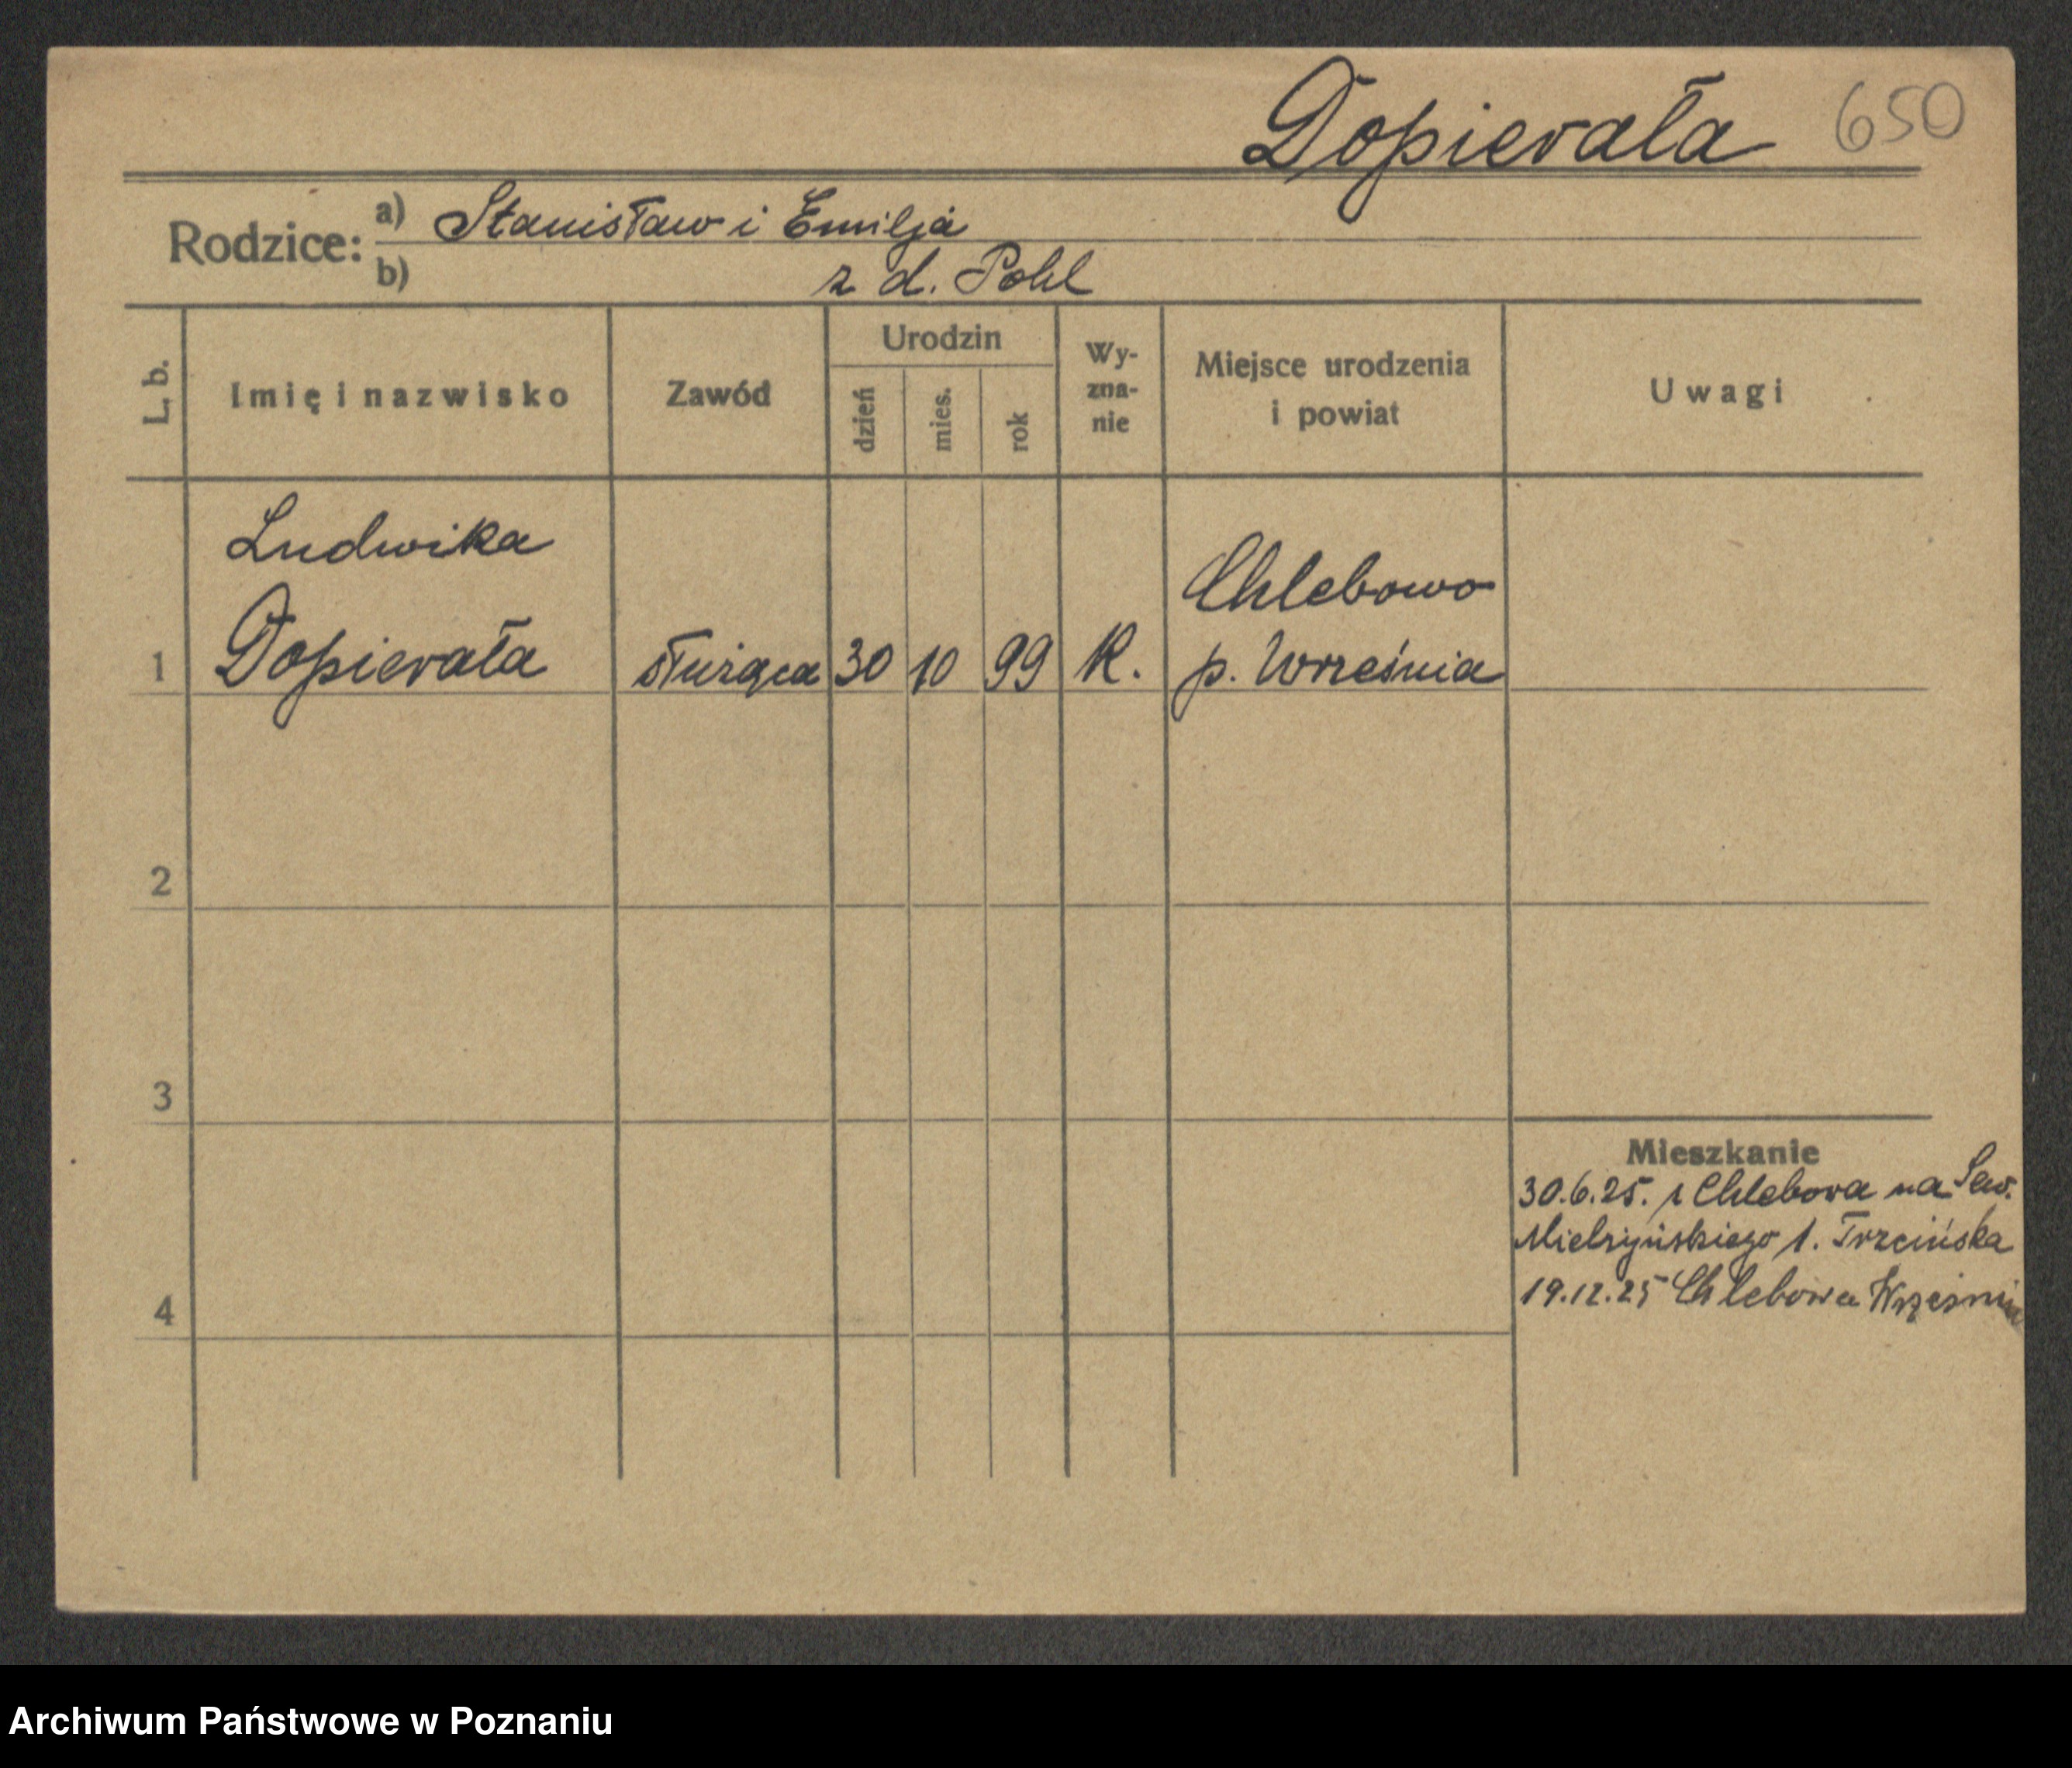 Dopierała 650
Rodzice: a) Stanisław i Emilja
b) z d. Pohl
L. b.
Imię i nazwisko
Zawód
Urodzin
dzień
mies.
rok
Wy-
zna-
nie
Miejsce urodzenia
i powiat
Uwagi
Ludwika
Chlebowo
1 Dopierała służąca 30 10 99 k. p. Września
2
3
4
Mieszkanie
30.6.25. z Chlebowa na Sew.
Mielżyńskiego 1. Trzcińska
19.12.25 Chlebowa Wrzesnia
Archiwum Państwowe w Poznaniu